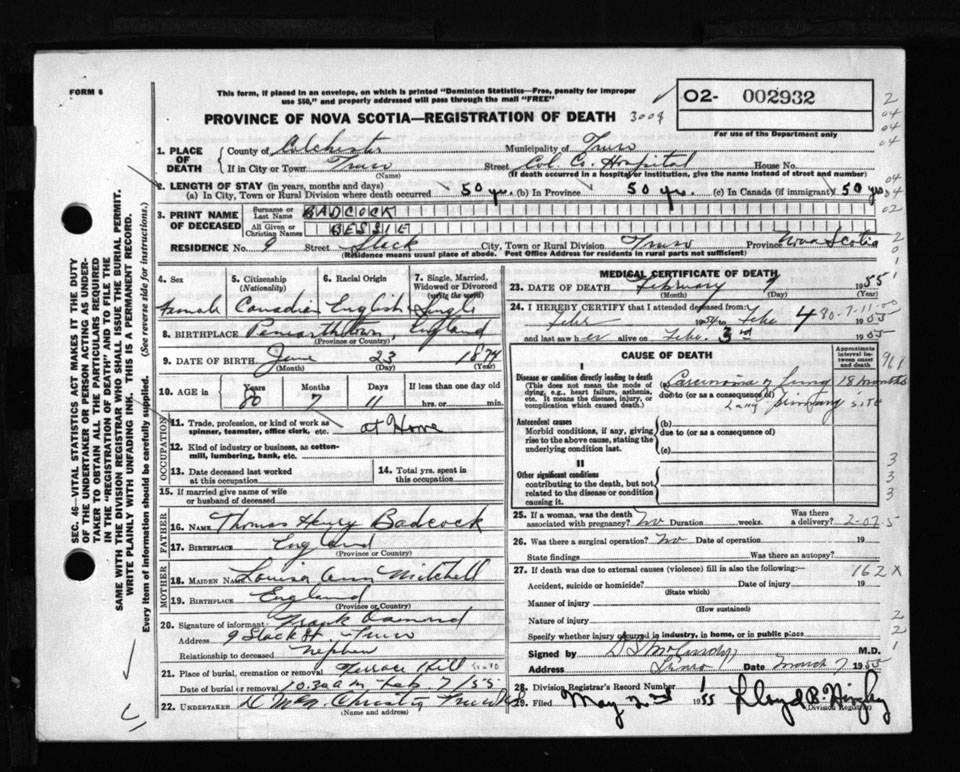 FORM 6
This form, if placed in an envelope, on which is printed "Dominion Statistics—Free, penalty for improper
use $50," and properly addressed will pass through the mail "FREE"
PROVINCE OF NOVA SCOTIA—REGISTRATION OF DEATH
O2- 002932
For use of the Department only
1. PLACE OF DEATH
County of Colchester Municipality of Truro
If in City or Town Truro Street Col. Co. Hospital House No.
(Name) (If death occurred in a hospital or institution, give the name instead of street and number)
2. LENGTH OF STAY (in years, months and days)
(a) In City, Town or Rural Division where death occurred 50 yrs. (b) In Province 50 yrs. (c) In Canada (if immigrant) 50 yrs
3. PRINT NAME OF DECEASED
Surname or Last Name BADCOCK
All Given or Christian Names BESSIE
RESIDENCE No. 9 Street Slack City, Town or Rural Division Truro Province Nova Scotia
(Residence means usual place of abode. Post Office Address for residents in rural parts not sufficient)
4. Sex Female
5. Citizenship (Nationality) Canadian
6. Racial Origin English
7. Single, Married, Widowed or Divorced (write the word) Single
8. BIRTHPLACE England
(Province or Country)
9. DATE OF BIRTH June 23 1874
(Month) (Day) (Year)
10. AGE in Years 80 Months 7 Days 11 If less than one day old
hrs. or min.
OCCUPATION
11. Trade, profession, or kind of work as spinner, teamster, office clerk, etc. at Home
12. Kind of industry or business, as cotton-mill, lumbering, bank, etc.
13. Date deceased last worked at this occupation
14. Total yrs. spent in this occupation
15. If married give name of wife or husband of deceased
FATHER
16. NAME Thomas Henry Badcock
17. BIRTHPLACE England
(Province or Country)
MOTHER
18. MAIDEN NAME Louisa Ann Mitchell
19. BIRTHPLACE England
(Province or Country)
20. Signature of informant Frank
Address 9 Slack St. Truro
Relationship to deceased nephew
21. Place of burial, cremation or removal Terrace Hill
Date of burial or removal 10.30 a m Feb 7/55
22. UNDERTAKER Christie Truro N.S
(Name and address)
MEDICAL CERTIFICATE OF DEATH
23. DATE OF DEATH February 1955
(Month) (Day) (Year)
24. I HEREBY CERTIFY that I attended deceased from:
Febr 1954 to Febr 4
and last saw her alive on Febr. 3rd 1955
CAUSE OF DEATH
Approximate interval between onset and death
I
Disease or condition directly leading to death
(This does not mean the mode of dying, e.g., heart failure, asthenia, etc. It means the disease, injury, or complication which caused death.)
(a) Carcinoma of lung 18 months
due to (or as a consequence of) Lung primary site
Antecedent causes
Morbid conditions, if any, giving rise to the above cause, stating the underlying condition last.
(b)
due to (or as a consequence of)
(c)
II
Other significant conditions
contributing to the death, but not related to the disease or condition causing it.
25. If a woman, was the death associated with pregnancy? No Duration weeks. Was there a delivery?
26. Was there a surgical operation? No Date of operation 19
State findings Was there an autopsy?
27. If death was due to external causes (violence) fill in also the following:—
162X
Accident, suicide or homicide? Date of injury 19
(State which)
Manner of injury
(How sustained)
Nature of injury
Specify whether injury occurred in industry, in home, or in public place
Signed by M.D.
Address Truro Date March 7 1955
28. Division Registrar's Record Number 1
29. Filed May 2nd 1955 Lloyd B.
(Division Registrar)
SEC. 46—VITAL STATISTICS ACT MAKES IT THE DUTY
OF THE UNDERTAKER OR PERSON ACTING AS UNDER-
TAKER TO OBTAIN ALL THE PARTICULARS REQUIRED
IN THE "REGISTRATION OF DEATH" AND TO FILE THE
SAME WITH THE DIVISION REGISTRAR WHO SHALL ISSUE THE BURIAL PERMIT.
WRITE PLAINLY WITH UNFADING INK. THIS IS A PERMANENT RECORD.
Every item of information should be carefully supplied. (See reverse side for instructions.)